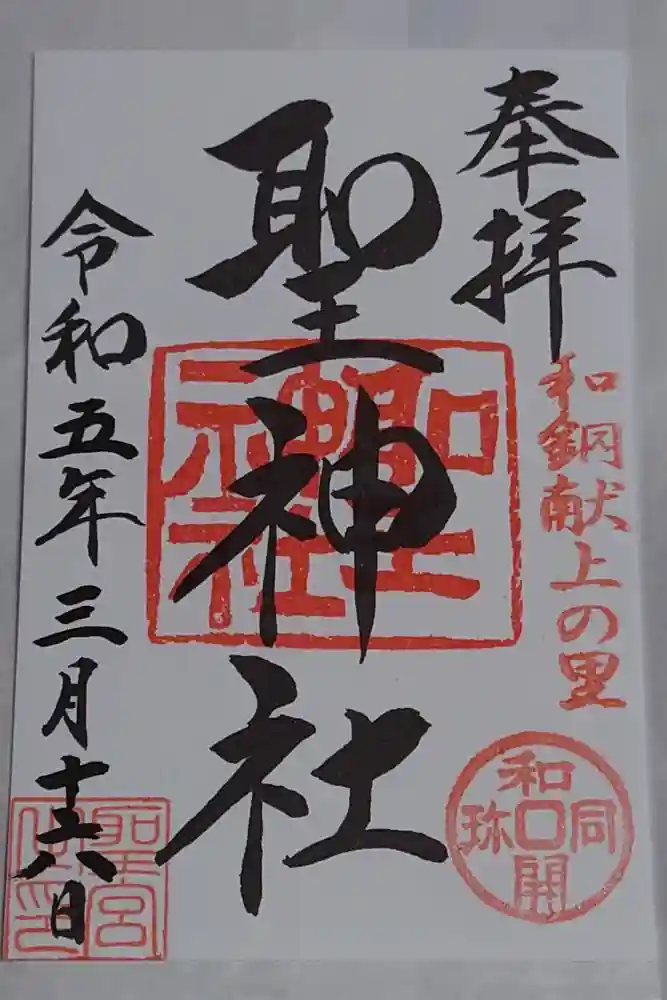 奉拝
和銅献上の里
和同開珎
聖神社
聖
神社
令和五年三月十六日
聖宮